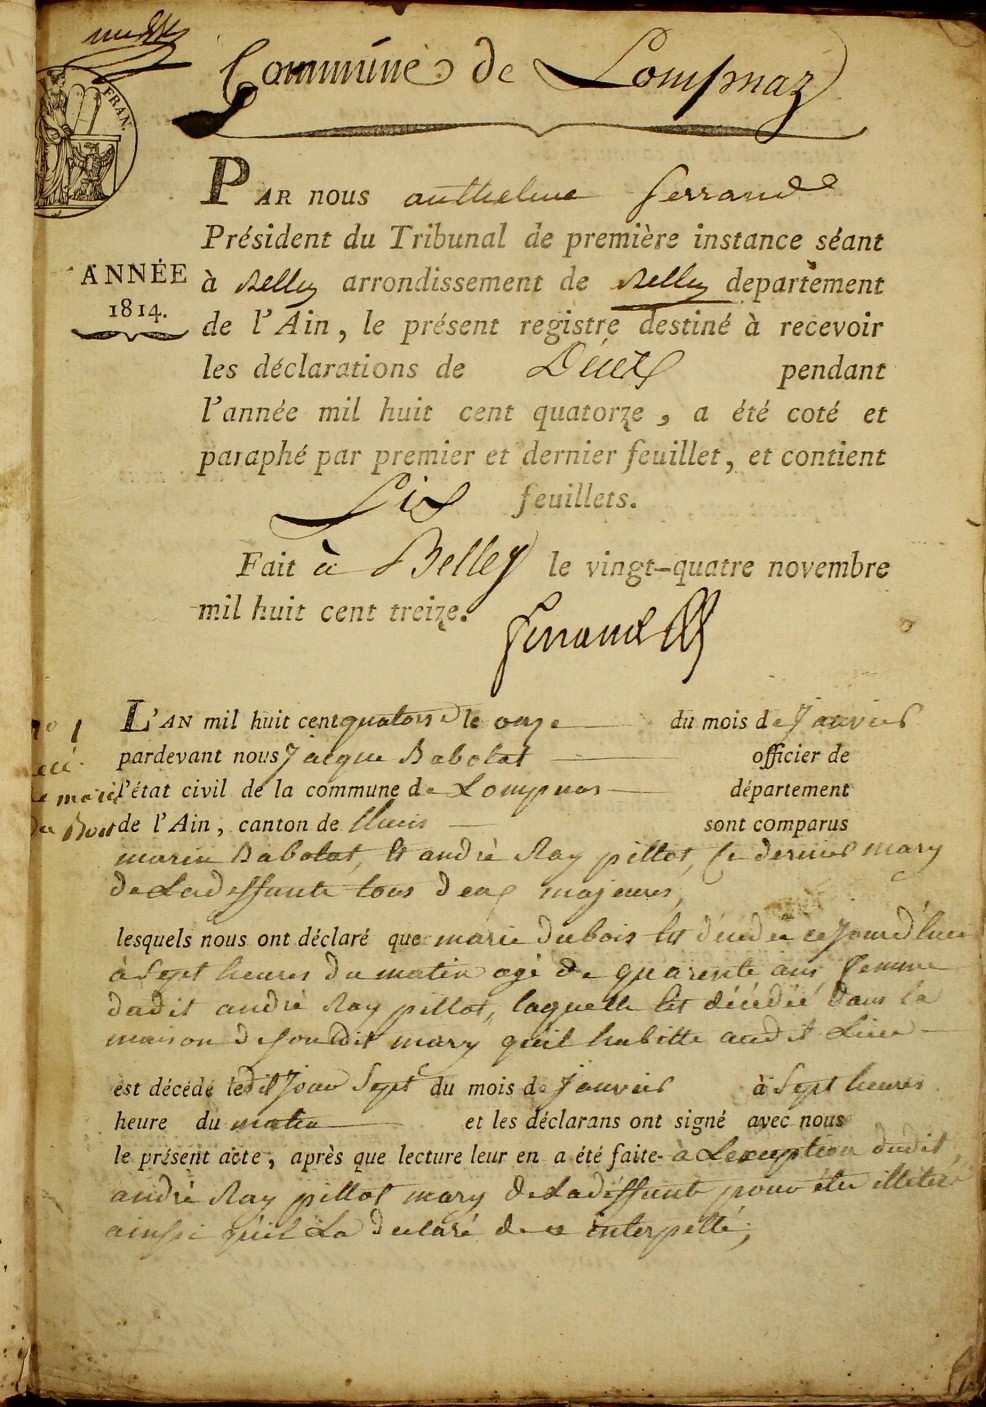 Commune de Lompnaz
FRAN.
PAR nous anthelme ferrand
Président du Tribunal de première instance séant
ANNÉE
1814.
à Belley arrondissement de Belley departement
de l'Ain, le présent registre destiné à recevoir
les déclarations de Décès pendant
l'année mil huit cent quatorze, a été coté et
paraphé par premier et dernier feuillet, et contient
Six feuillets.
Fait à Belley le vingt-quatre novembre
mil huit cent treize.
ferrand
L'AN mil huit cent quatorse le onze du mois de Janvier
pardevant nous Jacque Babolat officier de
l'état civil de la commune de Lompnas département
de l'Ain, canton de lhuis sont comparus
n° 1
de marie
du Bois
marin Babolat, Et andré Ray pillot, Ce dernier mary
de La deffunte tous deux majeures,
lesquels nous ont déclaré que marie dubois Est décédée ce Jourd'hui
à Sept heures du matin agé de quarente ans femme
dudit andré Ray pillot, laquelle Est décédée dans la
maison de Sondit mary qu'il habitte audit Lieu
est décédé le dit Jour Sept du mois de Janvier à Sept heures
heure du matin et les déclarans ont signé avec nous
le présent acte, après que lecture leur en a été faite. à L'exception dudit
andré Ray pillot mary de La deffunte pour être illiteré
ainssi qu'il La declaré de ce interpellé,